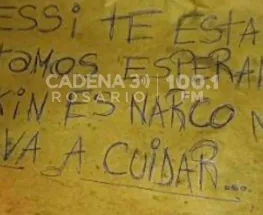 ESSI TE ESTA
TAMOS ESPERA
CADENA 3 100.1
ROSARIO FM
KIN ES NARCO N
VA A CUIDAR...